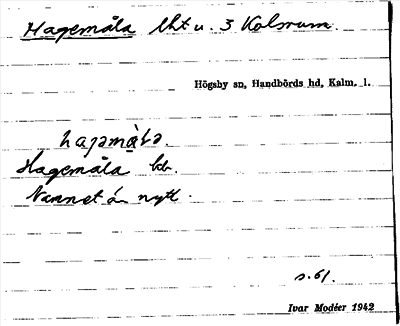 Hagemåla lht u. 3 Kolsrum.
Högsby sn, Handbörds hd, Kalm. l.
Hagemåla kb.
Namnet är nytt.
s. 61.
Ivar Modéer 1942